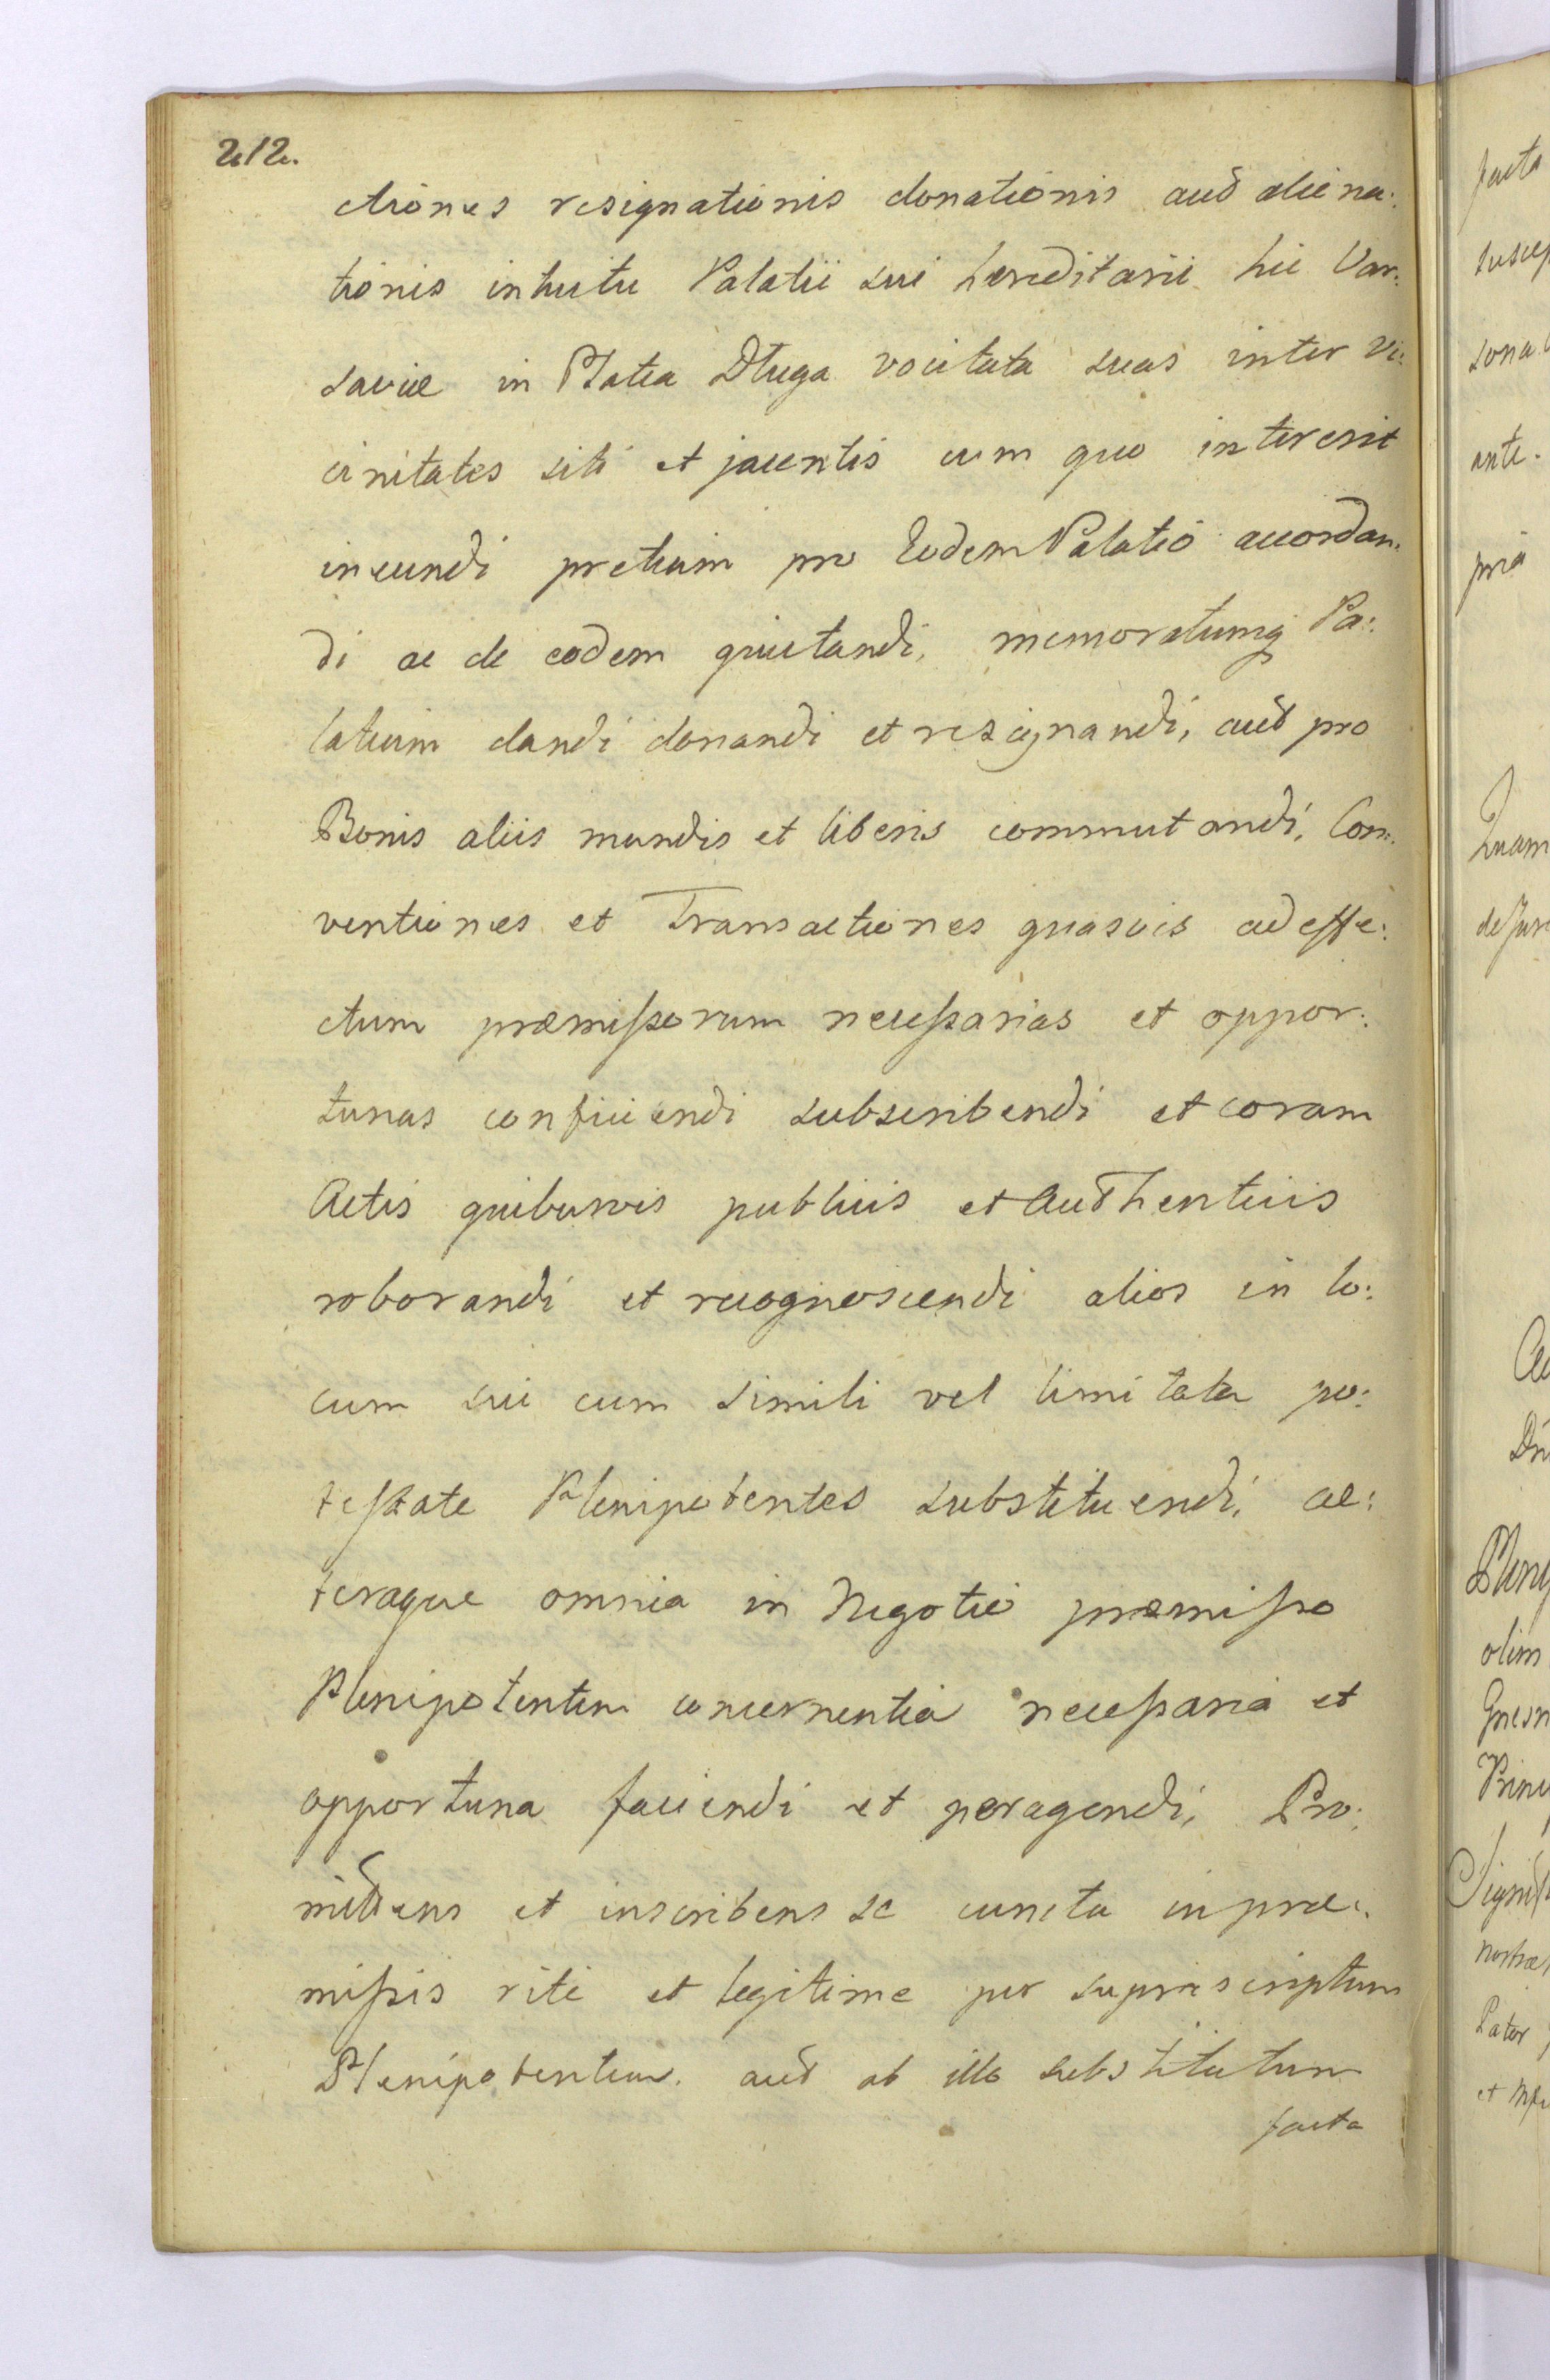 212.
ctiones resignationis donationis aut aliena:
tionis intuitu Palatii sui hæreditarii hic Var:
saviæ in Platea Długa vocitata suas inter vi:
cinitates siti et jacentis cum quo intererit
ineundi pretium pro Eodem Palatio accordan:
di ac de eodem quietandi, memoratumq Pa:
latium dandi donandi et resignandi, aut pro
Bonis aliis mundis et liberis commutandi, Con:
ventiones et Transactiones quasvis ad effe:
ctum præmissorum necessarias et oppor:
tunas conficiendi subscribendi et coram
Actis quibusvis publicis et authenticis
roborandi et recognoscendi alios in lo:
cum sui cum simili vel limitata po:
testate Plenipotentes substituendi, cæ:
teraque omnia in Negotio præmisso
Plenipotentem concernentia necessaria et
opportuna faciendi et peragendi, Pro:
mittens et inscribens se cuncta in præ:
missis rite et legitime per suprascriptum
Plenipotentem aut ab illo substitutum
facta
facta
suscep
sona
ante.
pria
Quam
de Jure
Dn
olim
Gnesn
Princ
Pater